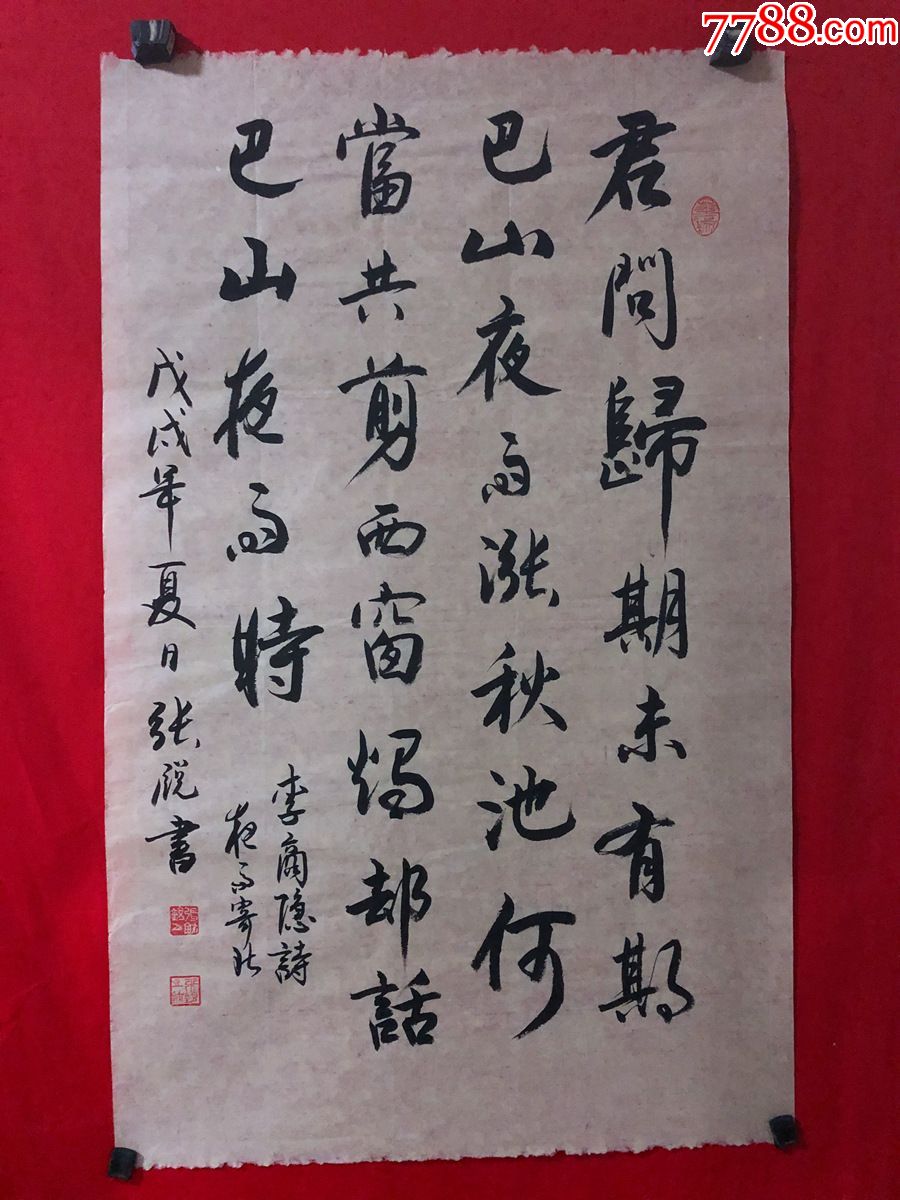 7788.com
君問歸期未有期
巴山夜雨漲秋池何
當共剪西窗燭却話
巴山夜雨時
李商隐詩
夜雨寄北
戊戌年夏日張
書